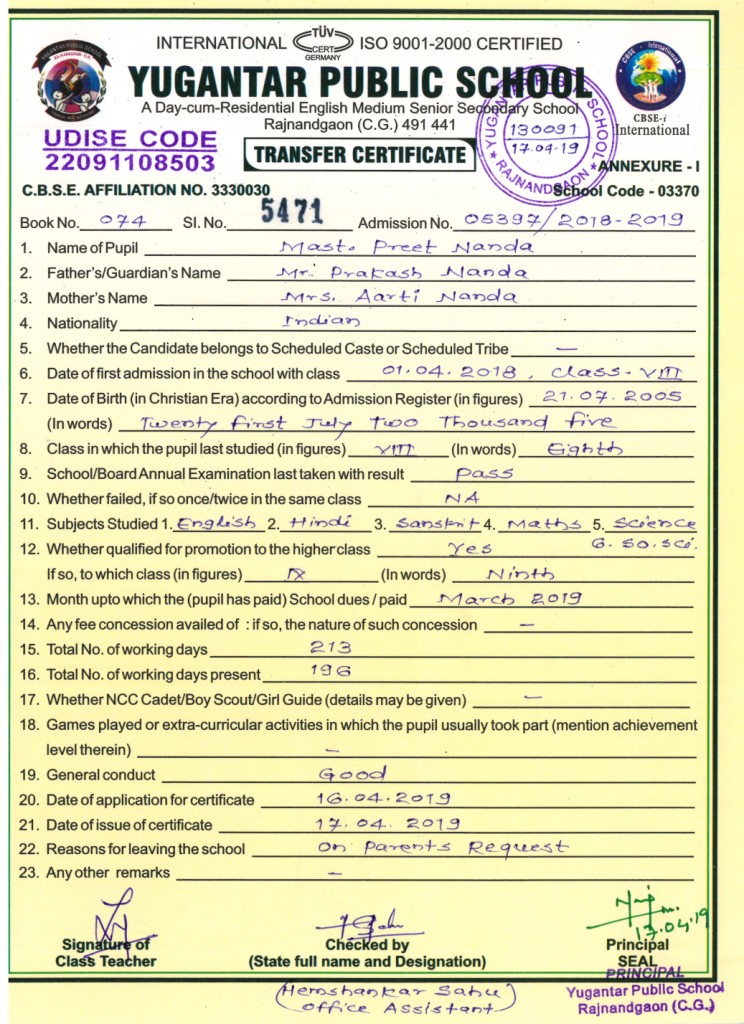 INTERNATIONAL TÜV CERT GERMANY ISO 9001-2000 CERTIFIED
YUGANTAR PUBLIC SCHOOL
A Day-cum-Residential English Medium Senior Secondary School
Rajnandgaon (C.G.) 491 441
CBSE - International
CBSE-i
International
UDISE CODE
22091108503
TRANSFER CERTIFICATE
YUGANTAR PUBLIC SCHOOL
130091
17.04.19
★ RAJNANDGAON ★
ANNEXURE - I
C.B.S.E. AFFILIATION NO. 3330030 School Code - 03370
Book No. 074 Sl. No. 5471 Admission No. 05397/2018-2019
1. Name of Pupil Mast. Preet Nanda
2. Father's/Guardian's Name Mr. Prakash Nanda
3. Mother's Name Mrs. Aarti Nanda
4. Nationality Indian
5. Whether the Candidate belongs to Scheduled Caste or Scheduled Tribe —
6. Date of first admission in the school with class 01.04.2018, Class-VIII
7. Date of Birth (in Christian Era) according to Admission Register (in figures) 21.07.2005
(In words) Twenty first July Two Thousand five
8. Class in which the pupil last studied (in figures) VIII (In words) Eighth
9. School/Board Annual Examination last taken with result Pass
10. Whether failed, if so once/twice in the same class NA
11. Subjects Studied 1. English 2. Hindi 3. Sanskrit 4. Maths 5. Science
6. So.Sci.
12. Whether qualified for promotion to the higher class Yes
If so, to which class (in figures) IX (In words) Ninth
13. Month upto which the (pupil has paid) School dues / paid March 2019
14. Any fee concession availed of : if so, the nature of such concession —
15. Total No. of working days 213
16. Total No. of working days present 196
17. Whether NCC Cadet/Boy Scout/Girl Guide (details may be given) —
18. Games played or extra-curricular activities in which the pupil usually took part (mention achievement
level therein) —
19. General conduct Good
20. Date of application for certificate 16.04.2019
21. Date of issue of certificate 17.04.2019
22. Reasons for leaving the school On Parents Request
23. Any other remarks —
17.04.19
Signature of Class Teacher
Checked by
(State full name and Designation)
Principal
SEAL
(Hemshankar Sahu)
Office Assistant
PRINCIPAL
Yugantar Public School
Rajnandgaon (C.G.)